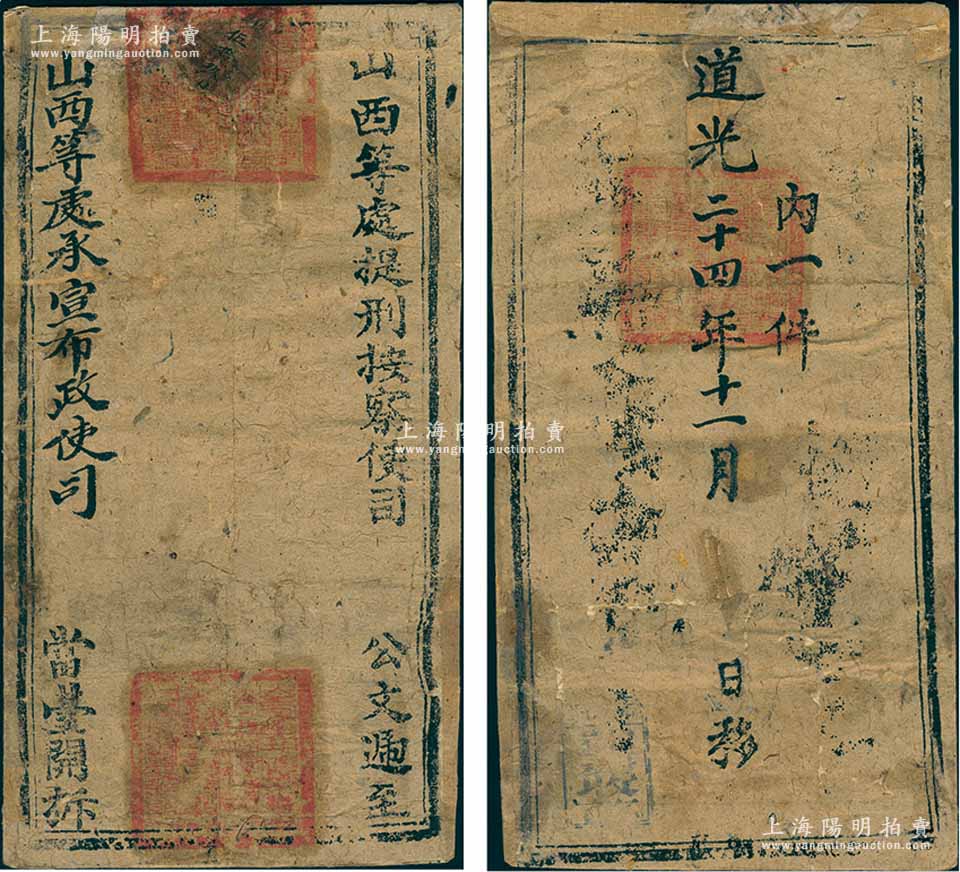 上海陽明拍賣
www.yangmingauction.com
山西等處提刑按察使司
公文遞至
山西等處承宣布政使司
當堂開拆
上海陽明拍賣
www.yangmingauction.com
內一件
道光二十四年十一月
日移
上海陽明拍賣
www.yangmingauction.com
上海陽明拍賣
www.yangmingauction.com